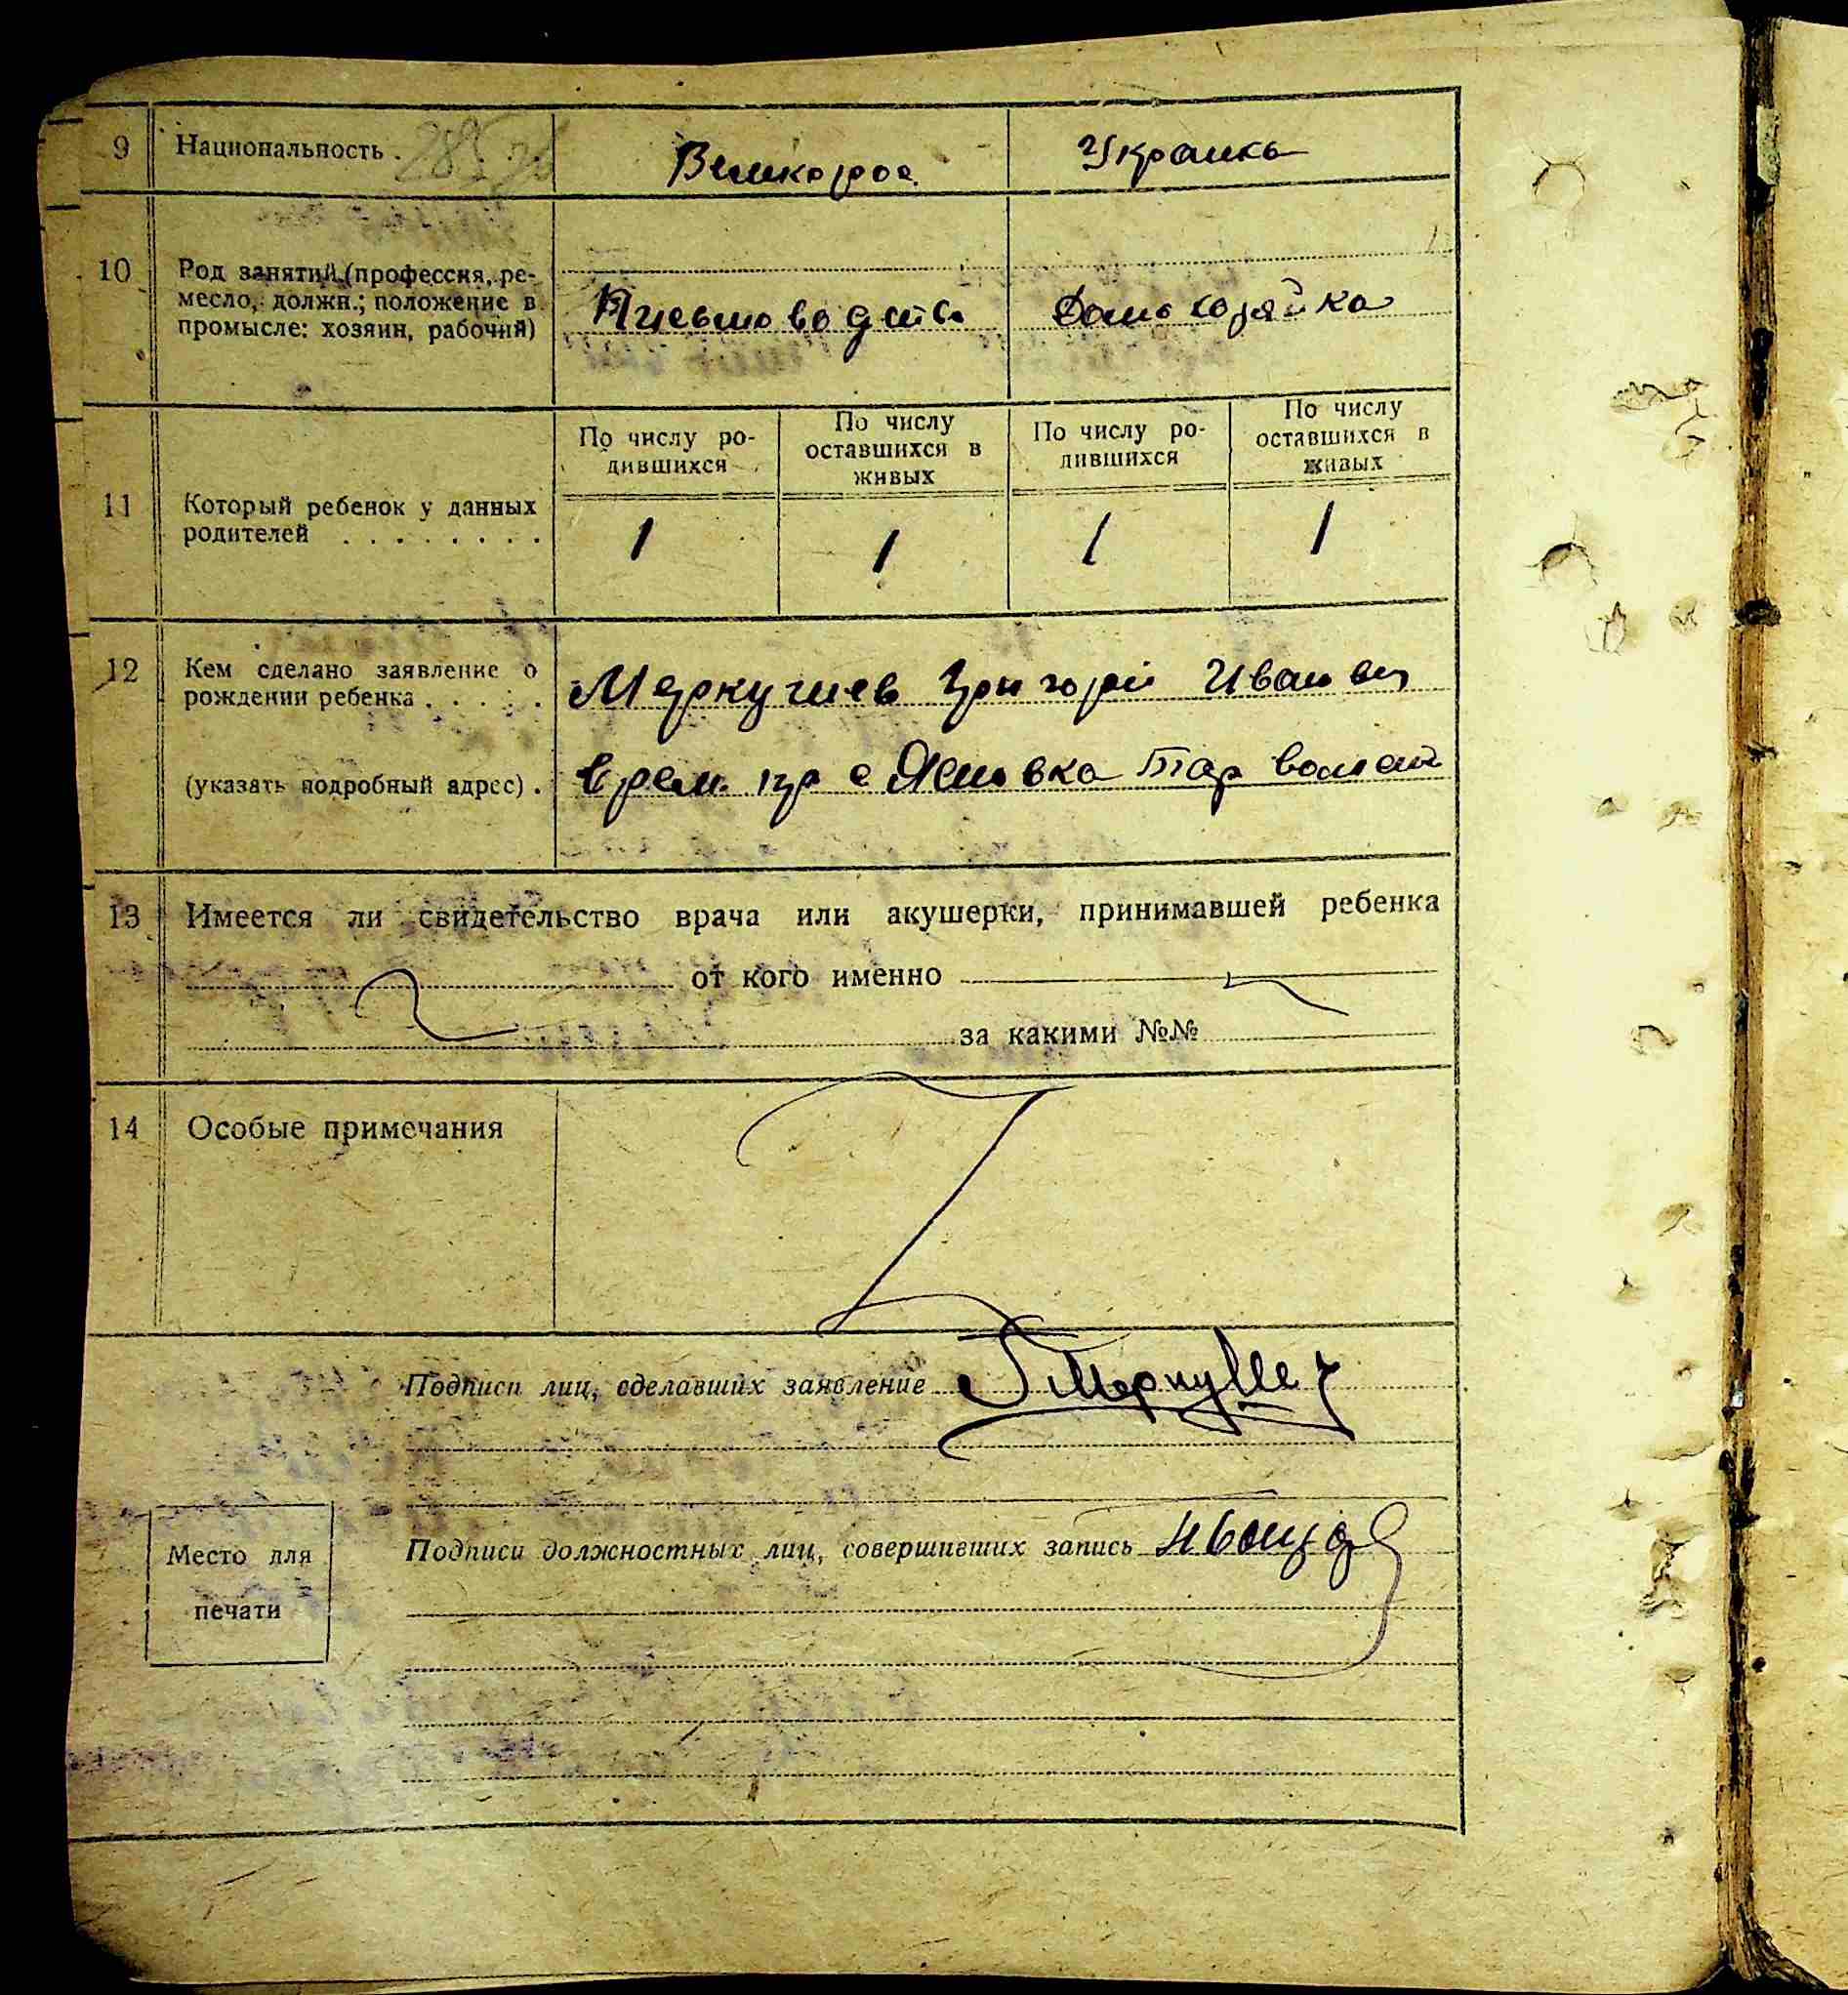 9 Национальность . Великорос Украинка
10 Род занятий (профессия, ре-
месло, должн.; положение в
промысле: хозяин, рабочий)
Письмоводитель Домохозяйка
11 Который ребенок у данных
родителей . . . . . . . .
По числу ро-
дившихся
По числу
оставшихся в
живых
По числу ро-
дившихся
По числу
оставшихся в
живых
1 1 1 1
12 Кем сделано заявление о
рождении ребенка . . . . .
Меркушев Григорий Иванович
(указать подробный адрес) . врем. пр с
13 Имеется ли свидетельство врача или акушерки, принимавшей ребенка
от кого именно
за какими №№
14 Особые примечания
Подписи лиц, сделавших заявление
Подписи должностных лиц, совершивших запись
Место для
печати